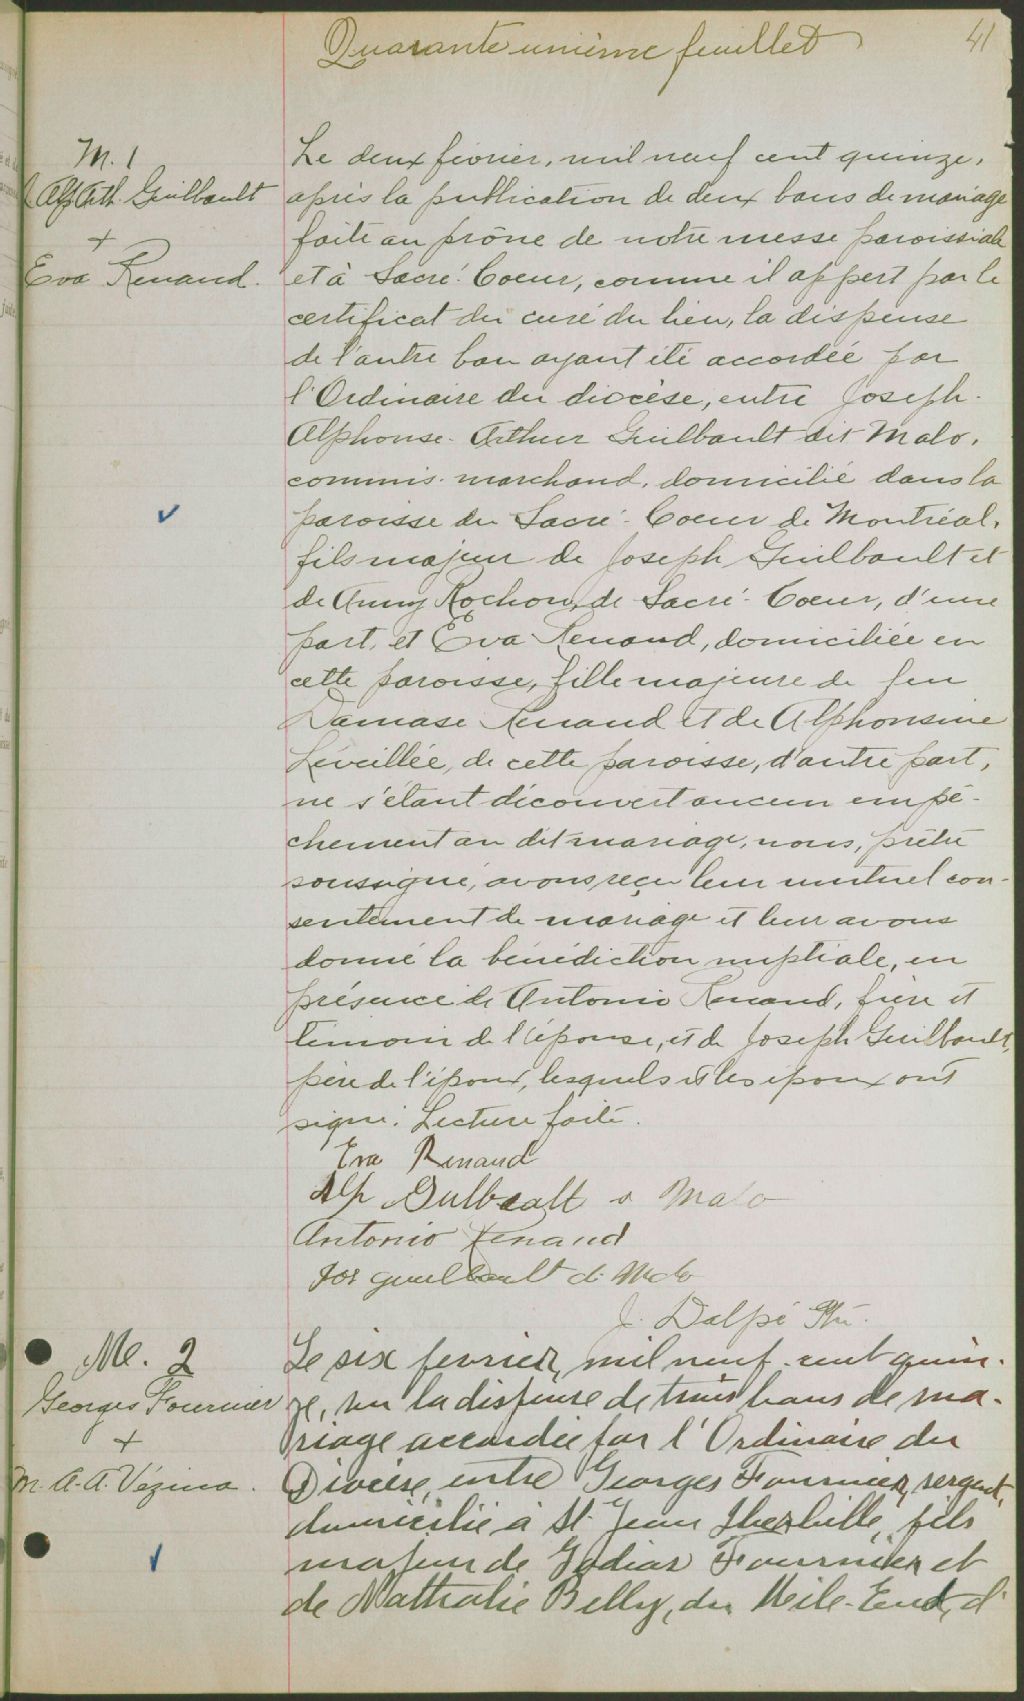 Quarante unième feuillet
41
M. 1
Alf. Arth. Guilbault
+
Eva Renaud.
Le deux février, mil neuf cent quinze,
après la publication de deux bans de mariage
faite au prône de notre messe paroissiale
et à Sacré-Coeur, comme il appert par le
certificat du curé du lieu, la dispense
de l'autre ban ayant été accordée par
l'Ordinaire du diocèse, entre Joseph-
Alphonse-Arthur Guilbault dit Malo,
commis-marchand, domicilié dans la
paroisse du Sacré-Coeur de Montréal,
fils majeur de Joseph Guilbault et
de Anny Rochon, de Sacré-Coeur, d'une
part, et Eva Renaud, domiciliée en
cette paroisse, fille majeure de feu
Damase Renaud et de Alphonsine
Léveillée, de cette paroisse, d'autre part,
ne s'étant découvert aucun empê-
chement au dit mariage, nous, prêtre
soussigné, avons reçu leur mutuel con-
sentement de mariage et leur avons
donné la bénédiction nuptiale, en
présence de Antonio Renaud, frère et
témoin de l'épouse, et de Joseph Guilbault,
père de l'époux, lesquels et les époux ont
signé. Lecture faite.
Eva Renaud
Alp Guilbault d Malo
Antonio Renaud
Jos guilbault d. Malo
J. Dalpé Ptr.
M. 2
Georges Fournier
+
M. A. A. Vézina.
Le six fevrier, mil neuf-cent quin-
ze, vu la dispense de trois bans de ma-
riage accordée par l'Ordinaire du
Diocèse, entre Georges Fournier, sergent,
domicilié à St. Jean Iberville, fils
majeur de Fournier et
de Nathalie Belly, du Mile-End, d'